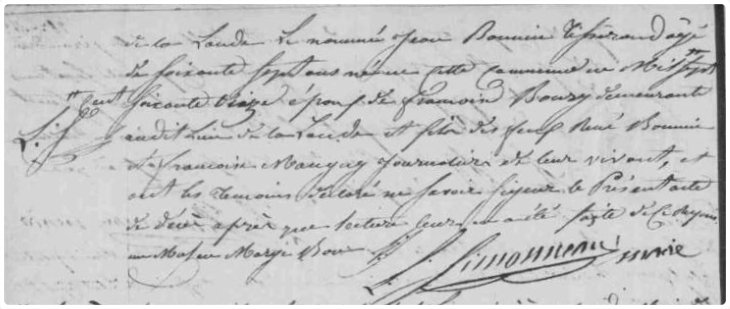 de la Lande le nommé Jean Bonnin tisserand âgé
de soixante sept ans né en cette commune en Mil Sept
Cent soixante treize époux de françoise Bouzy demeurante
audit Lieu de la Lande et fils des feux René Bonnin
& françoise journaliers de leur vivant, et
ont les temoins declaré ne savoir signer le Présent acte
de décès après que lecture leur en a été faite de
un Mot en Marge Bon
Simonneau maire